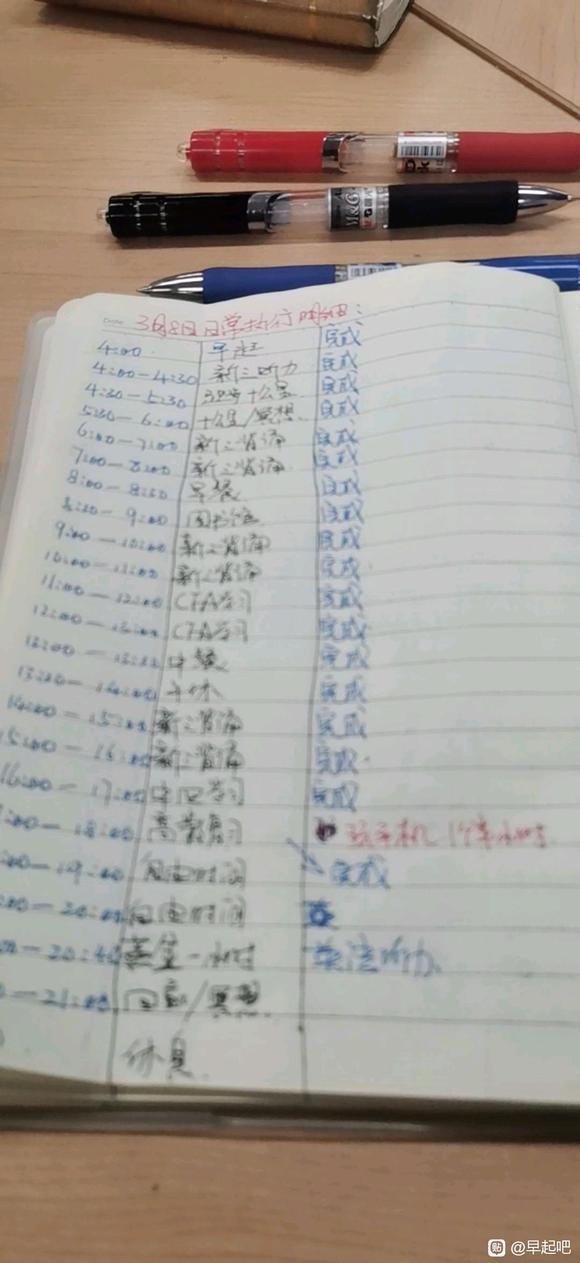 M&G
Date
3月8日 日常执行
4:00 早起 完成
4:00-4:30 新三听力 完成
4:30-5:30 十公里 完成
5:30-6:00 十公里/冥想 完成
6:00-7:00 新三背诵 完成
7:00-8:00 新三背诵 完成
8:00-8:30 早餐 完成
8:30-9:00 图书馆 完成
9:00-10:00 新三背诵 完成
10:00-11:00 新三背诵 完成
11:00-12:00 CFA学习 完成
12:00-13:00 CFA学习 完成
中餐 完成
-14:00 午休 完成
14:00-15:00 新三背诵 完成
15:00-16:00 新三背诵 完成
16:00-17:00 学习 完成
:00-18:00 高数复习 玩手机 1个半小时
:00-19:00 自由时间 完成
:00-20:00 自由时间
-20:40 一小时 英语听力
-21:00 回家/冥想
休息
贴 @早起吧